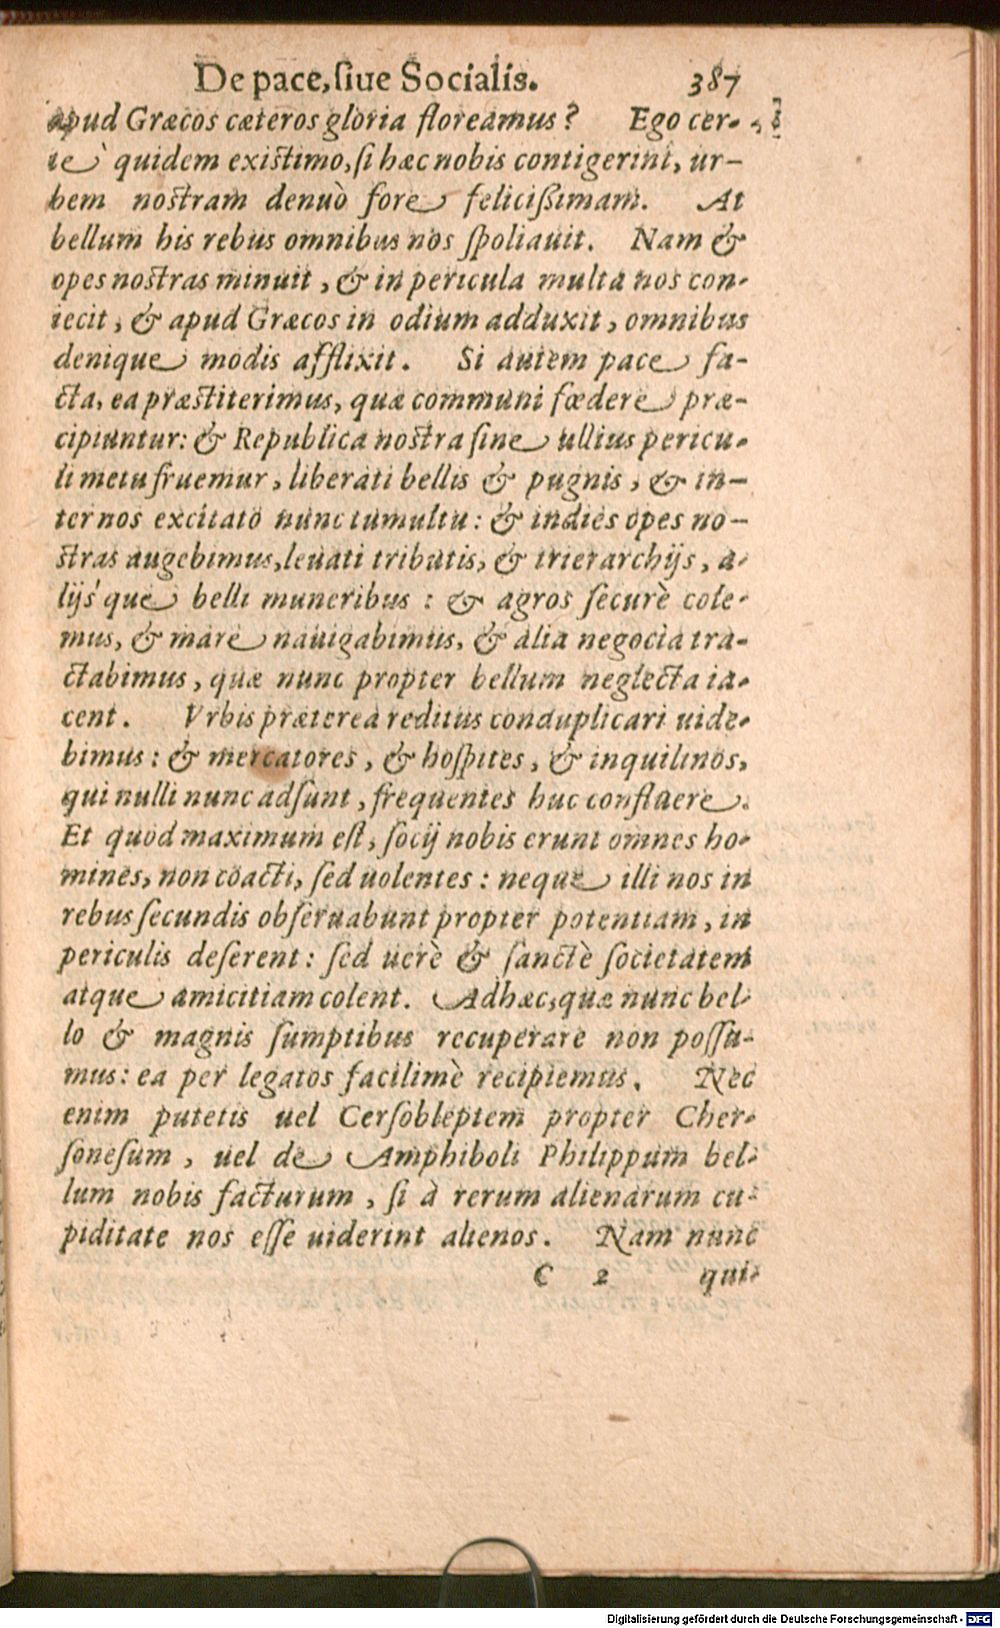 De pace, ſiue Socialis. 387
apud Græcos cæteros gloria floreamus? Ego cer-
tè quidem exiſtimo, ſi hæc nobis contigerint, ur-
bem noſtram denuò fore feliciſsimam. At
bellum his rebus omnibus nos ſpoliauit. Nam &
opes noſtras minuit, & in pericula multa nos con-
iecit, & apud Græcos in odium adduxit, omnibus
denique modis afflixit. Si autem pace fa-
cta, ea præſtiterimus, quæ communi fœdere præ-
cipiuntur: & Republica noſtra ſine ullius pericu-
li metu fruemur, liberati bellis & pugnis, & in-
ter nos excitato nunc tumultu: & indies opes no-
ſtras augebimus, leuati tributis, & trierarchijs, a-
lijśque belli muneribus: & agros ſecurè cole-
mus, & mare nauigabimus, & alia negocia tra-
ctabimus, quæ nunc propter bellum neglecta ia-
cent. Vrbis præterea reditus conduplicari uide-
bimus: & mercatores, & hoſpites, & inquilinos,
qui nulli nunc adſunt, frequentes huc confluere.
Et quod maximum eſt, ſocij nobis erunt omnes ho-
mines, non coacti, ſed uolentes: neque illi nos in
rebus ſecundis obſeruabunt propter potentiam, in
periculis deſerent: ſed uerè & ſanctè ſocietatem
atque amicitiam colent. Adhæc, quæ nunc bel-
lo & magnis ſumptibus recuperare non poſſu-
mus: ea per legatos facilimè recipiemus. Nec
enim putetis uel Cerſobleptem propter Cher-
ſoneſum, uel de Amphiboli Philippum bel-
lum nobis facturum, ſi à rerum alienarum cu-
piditate nos eſſe uiderint alienos. Nam nunc
C 2 qui-
Digitalisierung gefördert durch die Deutsche Forschungsgemeinschaft - DFG